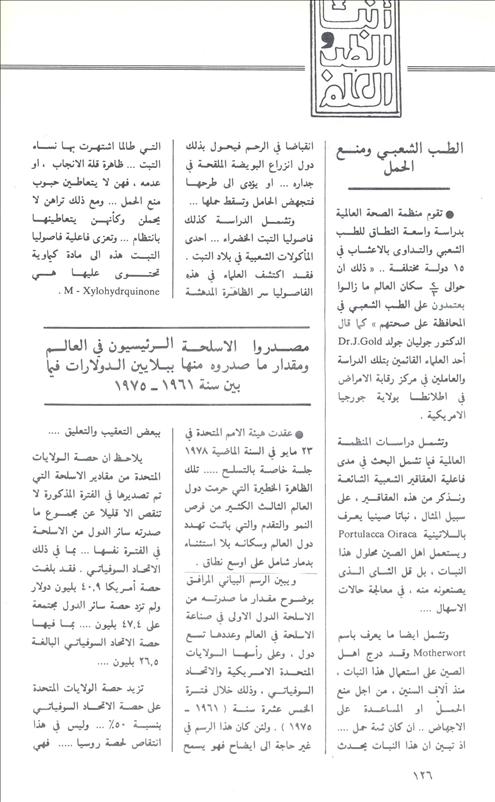 أنت
و
الطب
العلم
الطب الشعبي ومنع
الحمل
● تقوم منظمة الصحة العالمية
بدراسة واسعة النطاق للطب
الشعبي والتداوى بالاعشاب في
١٥ دولة مختلفة .. « ذلك ان
حوالى سكان العالم ما زالوا
يعتمدون على الطب الشعبي في
المحافظة على صحتهم » كما قال
الدكتور جوليان جولد Dr.J.Gold
أحد العلماء القائمين بتلك الدراسة
والعاملين في مركز رقابة الامراض
في اطلانطا بولاية جورجيا
الامريكية .
وتشمل دراسات المنظمة
العالمية فيما تشمل البحث في مدى
فاعلية العقاقير الشعبية الشائعة
ونذكر من هذه العقاقير ، على
سبيل المثال ، نباتا صينيا يعرف
باللاتينية Portulacca Oiraca
ويستعمل اهل الصين محلول هذا
النبات ، بل قل الشاى الذى
يصنعونه منه ، في معالجة حالات
الاسهال ....
وتشمل ايضا ما يعرف باسم
Motherwort وقد درج اهل
الصين على استعمال هذا النبات ،
منذ آلاف السنين ، من اجل منع
الحمل او المساعدة على
الاجهاض .. ان كان ثمة حمل ....
اذ تبين ان هذا النبات يحدث
انقباضا في الرحم فيحول بذلك
دون انزراع البويضة الملقحة في
جداره ... او يؤدى الى طرحها
فتجهض الحامل وتسقط حملها ...
وتشمل الدراسة كذلك
فاصوليا التبت الخضراء ... احدى
المأكولات الشعبية في بلاد التبت .
فقد اكتشف العلماء في هذه
الفاصوليا سر الظاهرة المدهشة
التي طالما اشتهرت بها نساء
التبت ... ظاهرة قلة الانجاب ، او
عدمه ، فهن لا يتعاطين حبوب
منع الحمل ... ومع ذلك تراهن لا
يحملن وكأنهن يتعاطينها
بانتظام ... وتعزى فاعلية فاصوليا
التبت هذه الى مادة كيماوية
تحتوى عليها هي
M - Xylohydrquinone .
مصدروا الاسلحة الرئيسيون في العالم
ومقدار ما صدروه منها ببلايين الدولارات فيما
بين سنة ١٩٦١ - ١٩٧٥
● عقدت هيئة الامم المتحدة في
٢٣ مايو في السنة الماضية ١٩٧٨
جلسة خاصة بالتسلح ..... تلك
الظاهرة الخطيرة التي حرمت دول
العالم الثالث الكثير من فرص
النمو والتقدم والتي باتت تهدد
دول العالم وسكانه بلا استثناء
بدمار شامل على اوسع نطاق .
ويبين الرسم البياني المرافق
بوضوح مقدار ما صدرته من
الاسلحة الدول الاولى في صناعة
الاسلحة في العالم وعددها تسع
دول ، وعلى رأسها الولايات
المتحدة الامريكية والاتحاد
السوفياتي ، وذلك خلال فترة
الخمس عشرة سنة ( ١٩٦١ -
١٩٧٥ ) . ولئن كان هذا الرسم في
غير حاجة الى ايضاح فهو يسمح
ببعض التعقيب والتعليق ....
يلاحظ ان حصة الولايات
المتحدة من مقادير الاسلحة التي
تم تصديرها في الفترة المذكورة لا
تنقص الا قليلا عن مجموع ما
صدرته سائر الدول من الاسلحة
في الفترة نفسها ... بما في ذلك
الاتحاد السوفياتي . فقد بلغت
حصة أمريكا ٤٠,٩ بليون دولار
ولم تزد حصة سائر الدول مجتمعة
على ٤٧,٤ بليون .... بما فيها
حصة الاتحاد السوفياتي البالغة
٢٦,٥ بليون ....
تزيد حصة الولايات المتحدة
على حصة الاتحاد السوفياتي
بنسبة ٥٠٪ ... وليس في هذا
انتقاص لحصة روسيا ..... فهي
١٢٦